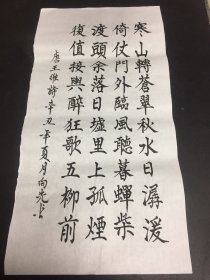 寒山轉蒼翠秋水日潺湲
倚仗門外臨風聽暮蟬柴
渡頭余落日墟里上孤煙
復值接輿醉狂歌五柳前
唐王維詩辛丑年夏月向先